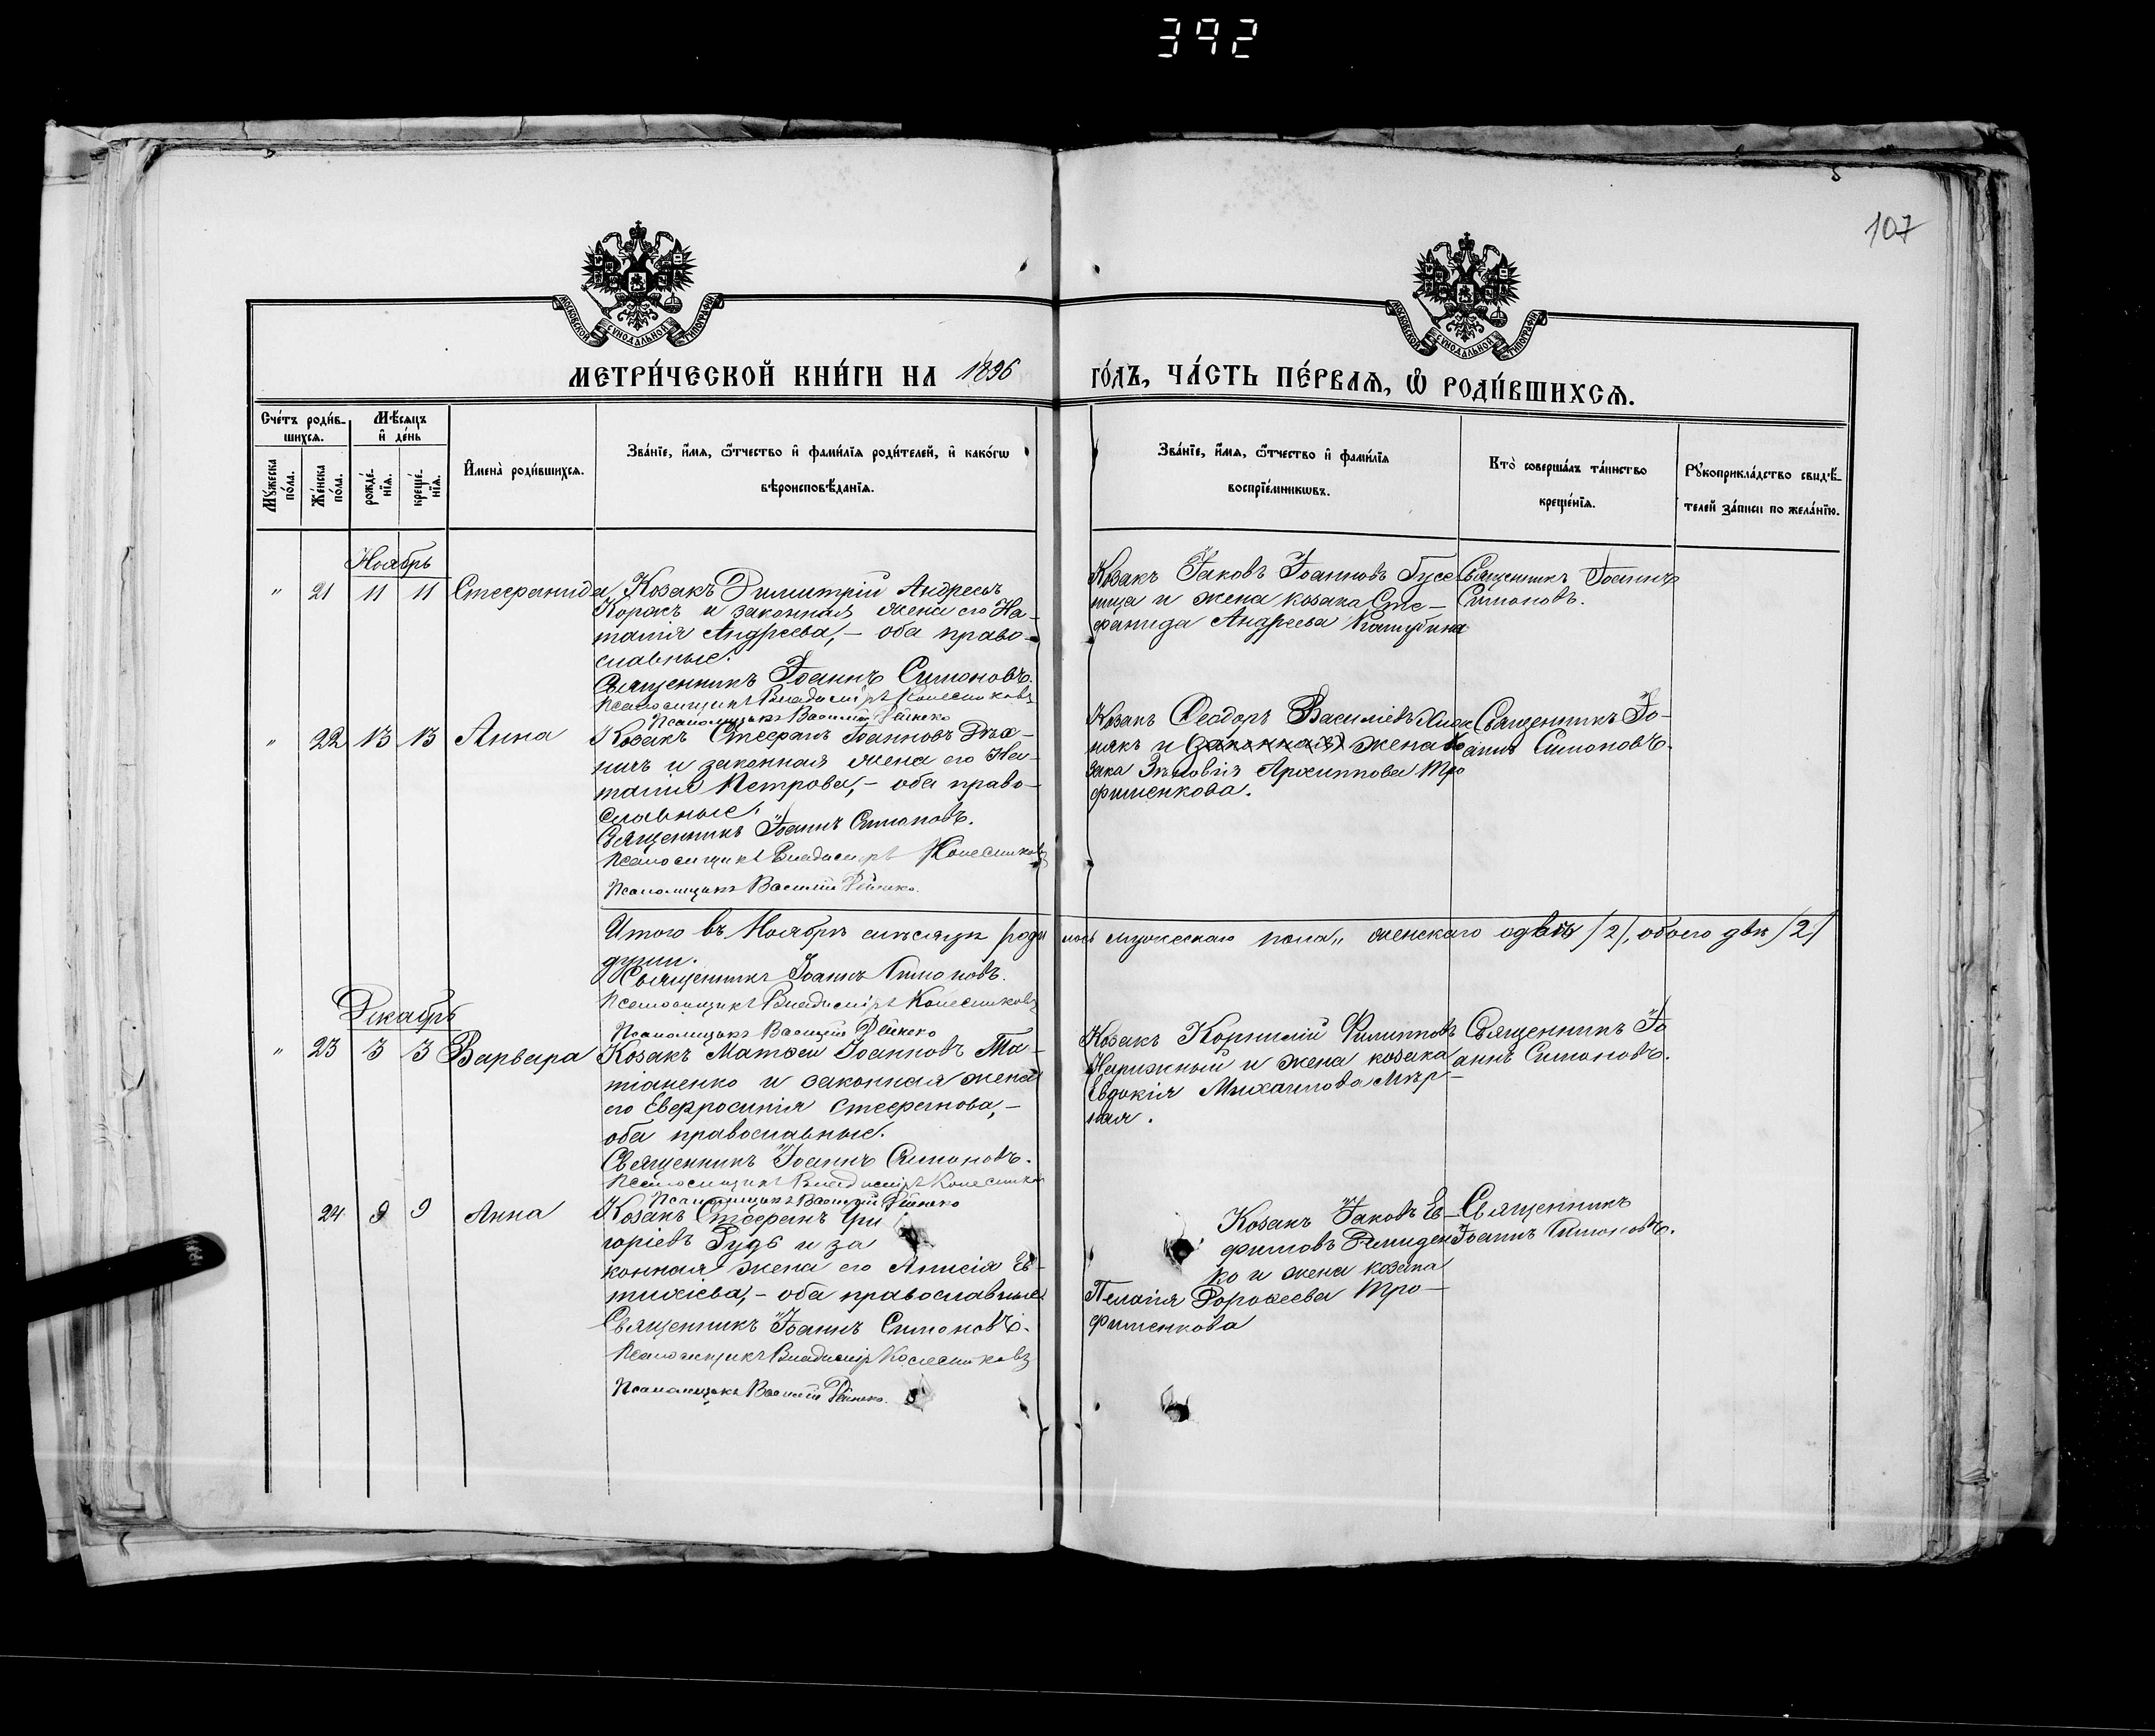 392
107
МОСКОВСКОЙ СѴНОДАЛЬНОЙ ТИПОГРАФІИ
МОСКОВСКОЙ СѴНОДАЛЬНОЙ ТИПОГРАФІИ
МЕТРИ́ЧЕСКОЙ КНИ́ГИ НА 1896 ГО́ДЪ, ЧА́СТЬ ПЕ́РВАѦ, Ѡ҆ РОДИ́ВШИХСѦ.
Сче́тъ роди́в-
шихсѧ.
Мꙋ́жеска по́ла.
Же́нска по́ла.
Мѣ́сѧцъ
и҆ де́нь
рожде́-
нїѧ.
креще́-
нїѧ.
И҆мена̀ роди́вшихсѧ.
Зва́нїе, и҆́мѧ, ѻ҆́тчество и҆ фами́лїѧ роди́телей, и҆ како́гѡ
вѣроисповѣ́данїѧ.
Зва́нїе, и҆́мѧ, ѻ҆́тчество и҆ фами́лїѧ
воспрїе́мникѡвъ.
Кто̀ соверша́лъ та́инство
креще́нїѧ.
Рꙋкоприкла́дство свидѣ́-
телей за́писи по жела́нїю.
Ноябрь
" 21 11 11 Стефанида
Козакъ Димитрій Андреевъ
Коракъ и законная жена его На-
талія Андреева, – оба право-
славные.
Священникъ Іоаннъ Симоновъ.
Псаломщикъ Владиміръ Колесниковъ
Псаломщикъ Василій Дейнеко
Козакъ Іаковъ Іоанновъ Гусе
ница и жена козака Сте-
фанида Андреева
Священникъ Іоаннъ
Симоновъ.
" 22 13 13 Анна
Козакъ Стефанъ Іоанновъ
и законная жена его На-
талія Петрова, – оба право-
славные.
Священникъ Іоаннъ Симоновъ.
Псаломщикъ Владиміръ Колесниковъ
Псаломщикъ Василій Дейнеко.
Козакъ Ѳеодоръ Василіевъ
някъ и (законная) жена ко
зака Зиновія Архиппова Тро
фименкова.
Священникъ Іо-
аннъ Симоновъ.
Итого въ Ноябрѣ мѣсяцѣ роди лось мужескаго пола „ женскаго двѣ /2/, обоего двѣ /2/
души.
Священникъ Іоаннъ Симоновъ.
Псаломщикъ Владиміръ Колесниковъ
Псаломщикъ Василій Дейнеко
Декабрь
" 23 3 3 Варвара
Козакъ Матѳей Іоанновъ Та-
тіаненко и законная жена
его Евфросинія Стефанова, –
оба православные.
Священникъ Іоаннъ Симоновъ.
Псаломщикъ Владиміръ Колесников
Псаломщикъ Василій Дейнеко
Козакъ Корнилій Филипповъ
Нарижный и жена козака
Евдокія Михаилова Мир-
ная.
Священникъ Іо
аннъ Симоновъ.
24 9 9 Анна
Козакъ Стефанъ Гри
горіевъ Рудь и за
конная жена его Анисія Ев-
тихіева, – оба православные
Священникъ Іоаннъ Симоновъ.
Псаломщикъ Владиміръ Колесниковъ
Псаломщикъ Василій Дейнеко.
Козакъ Іаковъ Ев-
фимовъ Демиден
ко и жена козака
Пелагія Дорофеева Тро-
фименкова
Священникъ
Іоаннъ Симоновъ.